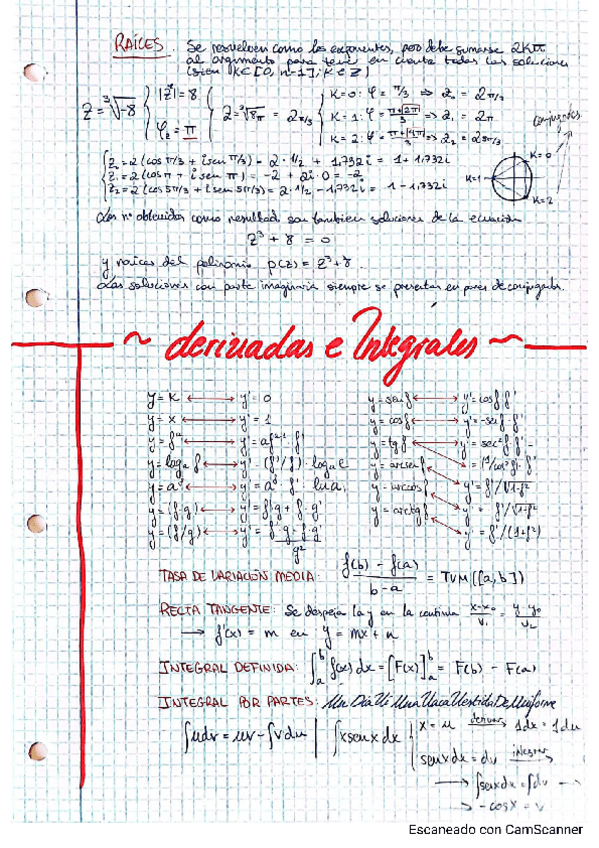 RAÍCES. Se resuelven como los exponentes, pero debe sumarse 2Kπ
al argumento para tener en cuenta todas las soluciones
(siendo K∈[0, n-1]; K∈Z)
Z = ³√-8 { |Z| = 8 φz = π { Z = ³√8π = 2π/3 { K=0: φ = π/3 => Z₀ = 2π/3
K=1: φ = π+2π/3 => Z₁ = 2π
K=2: φ = π+4π/3 => Z₂ = 25π/3
conjugados
Z₀ = 2(cos π/3 + i sen π/3) = 2·1/2 + 1,732i = 1 + 1,732i
Z₁ = 2(cos π + i sen π) = -2 + 2i·0 = -2
Z₂ = 2(cos 5π/3 + i sen 5π/3) = 2·1/2 - 1,732i = 1 - 1,732i
K=0
K=1
K=2
Los nº obtenidos como resultado son también soluciones de la ecuación
Z³ + 8 = 0
y raíces del polinomio p(z) = Z³+8.
Las soluciones con parte imaginaria siempre se presentan en pares de conjugados.
~ derivadas e Integrales ~
y = K ↔ y' = 0
y = x ↔ y' = 1
y = fᵃ ↔ y' = a fᵃ⁻¹ · f'
y = logₐ f ↔ y' = (f'/f) · logₐ e
y = aᶠ ↔ y' = aᶠ · f' · ln a
y = (f·g) ↔ y' = f'·g + f·g'
y = (f/g) ↔ y' = f'·g - f·g' / g²
y = sen f ↔ y' = cos f · f'
y = cos f ↔ y' = -sen f · f'
y = tg f ↔ y' = sec² f · f' =
= (1/cos² f) · f'
y = arcsen f ↔ y' = f'/√1-f²
y = arccos f ↔ y' = - f'/√1-f²
y = arctg f ↔ y' = f'/(1+f²)
TASA DE VARIACIÓN MEDIA: f(b) - f(a) / b-a = TVM([a,b])
RECTA TANGENTE: Se despeja la y en la continua x-x₀/v₁ = y-y₀/v₂
→ f'(x) = m en y = mx + n
INTEGRAL DEFINIDA: ∫ₐᵇ f(x) dx = [F(x)]ₐᵇ = F(b) - F(a)
INTEGRAL POR PARTES: Un Día Vi Una Vaca Vestida De Uniforme
∫udv = uv - ∫vdu | ∫x senx dx { x = u derivar → 1dx = 1du
senx dx = dv integrar
→ ∫senxdx = ∫dv →
→ -cosx = v
Escaneado con CamScanner